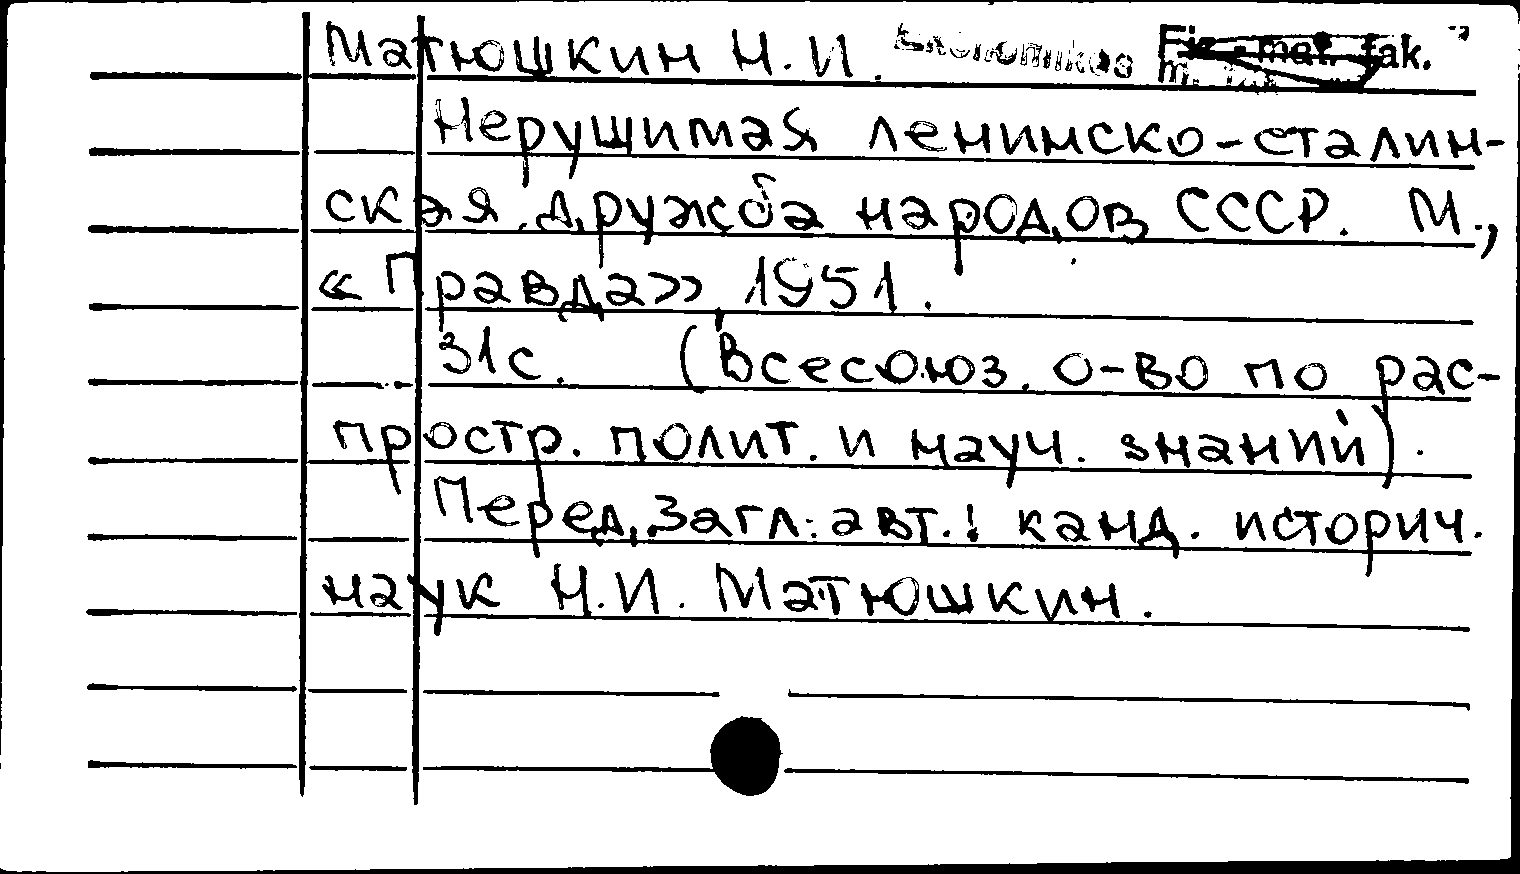 Матюшкин Н.И. Ekonomikos Fiz.-mat. fak.
Нерушимая ленинско-сталин-
ская дружба народов СССР. М.,
«Правда», 1951.
31с. (Всесоюз. о-во по рас-
простр. полит. и науч. знаний).
Перед загл. авт.: канд. историч.
наук Н.И. Матюшкин.